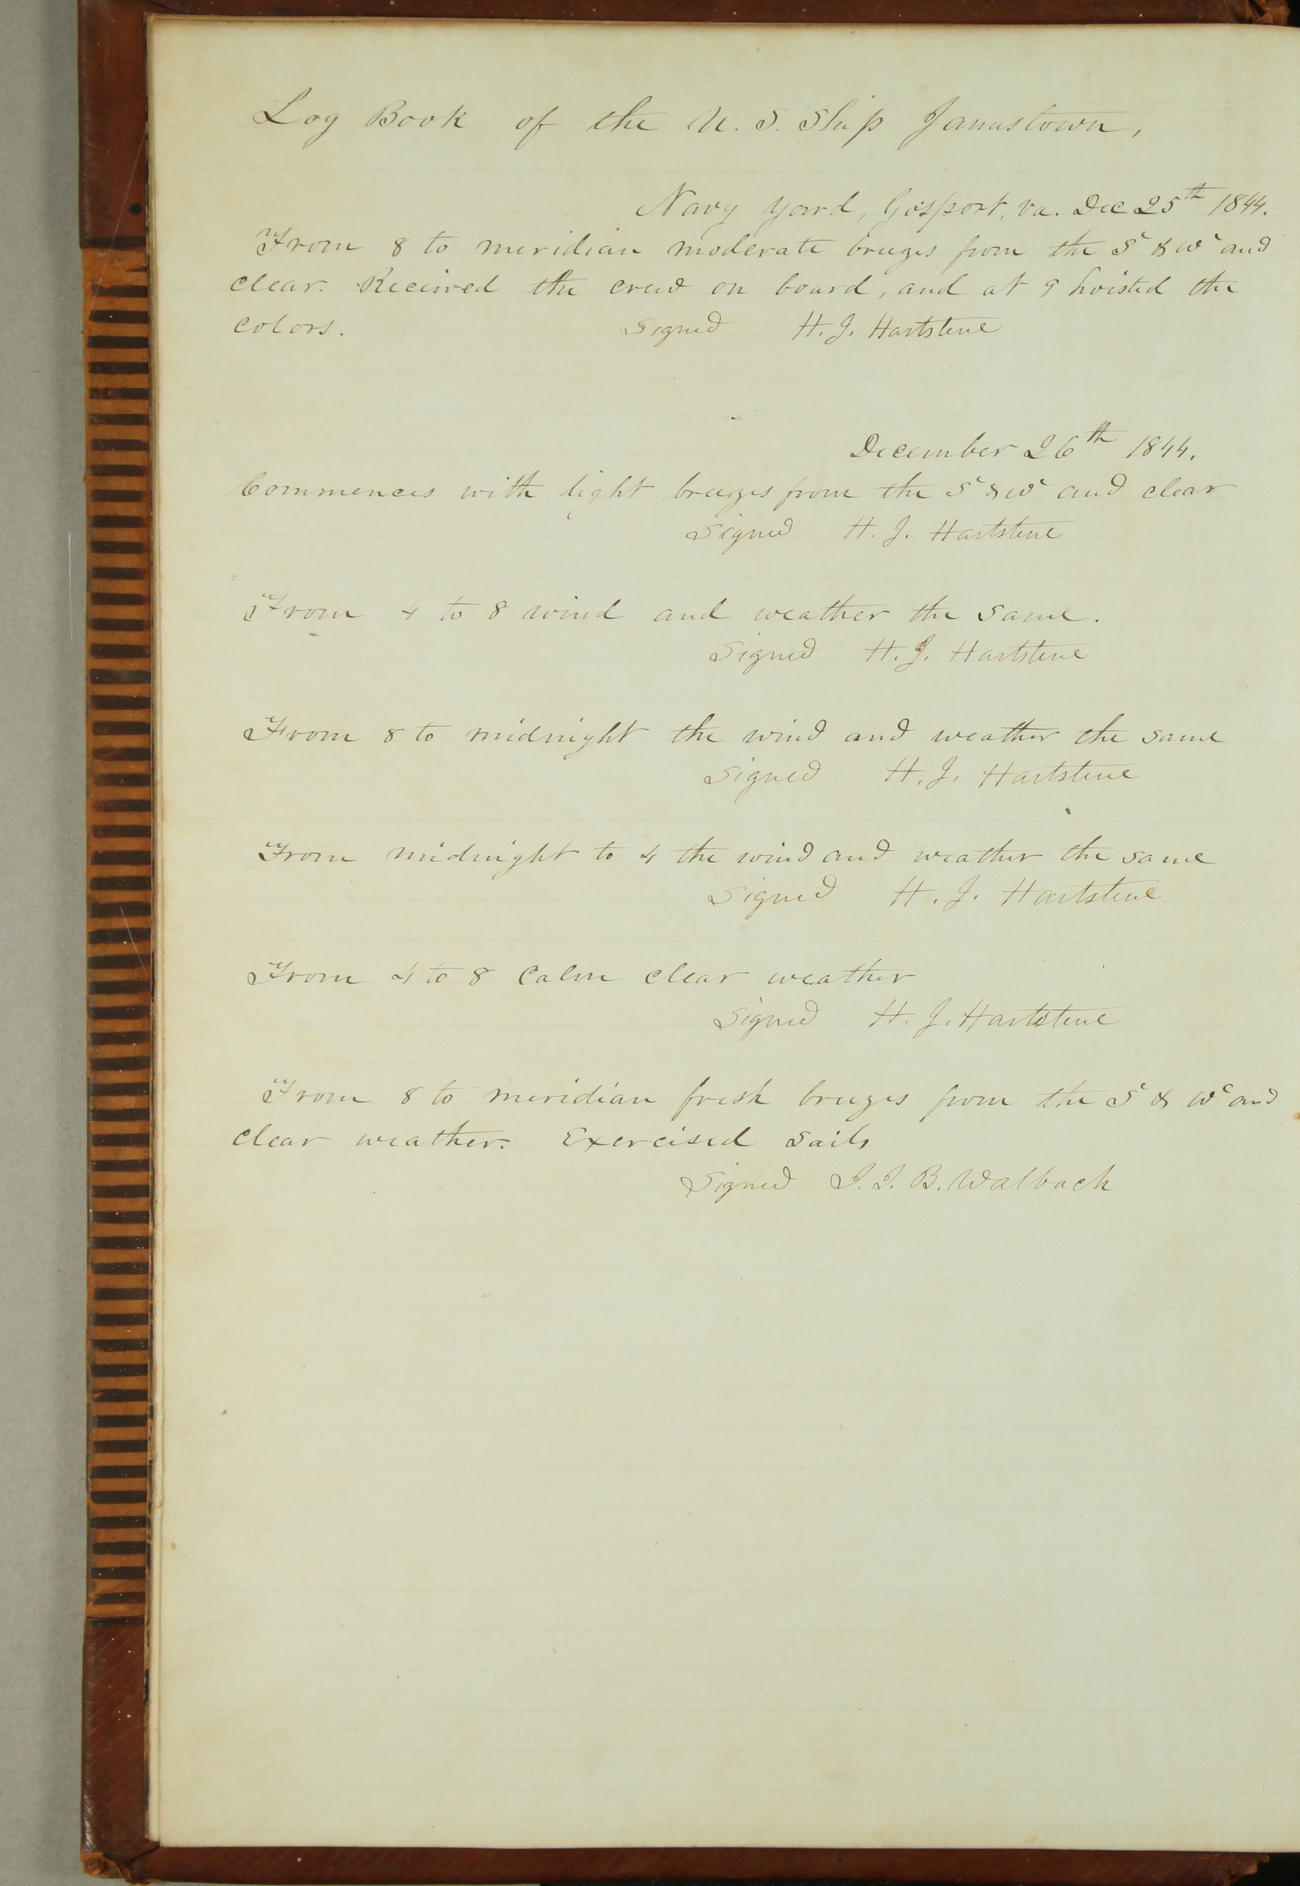 Log Book of the U. S. Ship Jamestown,
Navy Yard, Gosport, Va. Dec 25th 1844.
From 8 to meridian moderate breezes from the Sd & Wd and
clear. Received the crew on board, and at 9 hoisted the
colors. Signed H. J. Hartstene
December 26th 1844.
Commences with light breezes from the Sd & Wd and clear
Signed H. J. Hartstene
From 4 to 8 wind and weather the same.
Signed H. J. Hartstene
From 8 to midnight the wind and weather the same
Signed H. J. Hartstene
From midnight to 4 the wind and weather the same
Signed H. J. Hartstene
From 4 to 8 Calm clear weather
Signed H. J. Hartstene
From 8 to meridian fresh breezes from the Sd & Wd and
clear weather. Exercised Sails
Signed J. J. B. Walbach